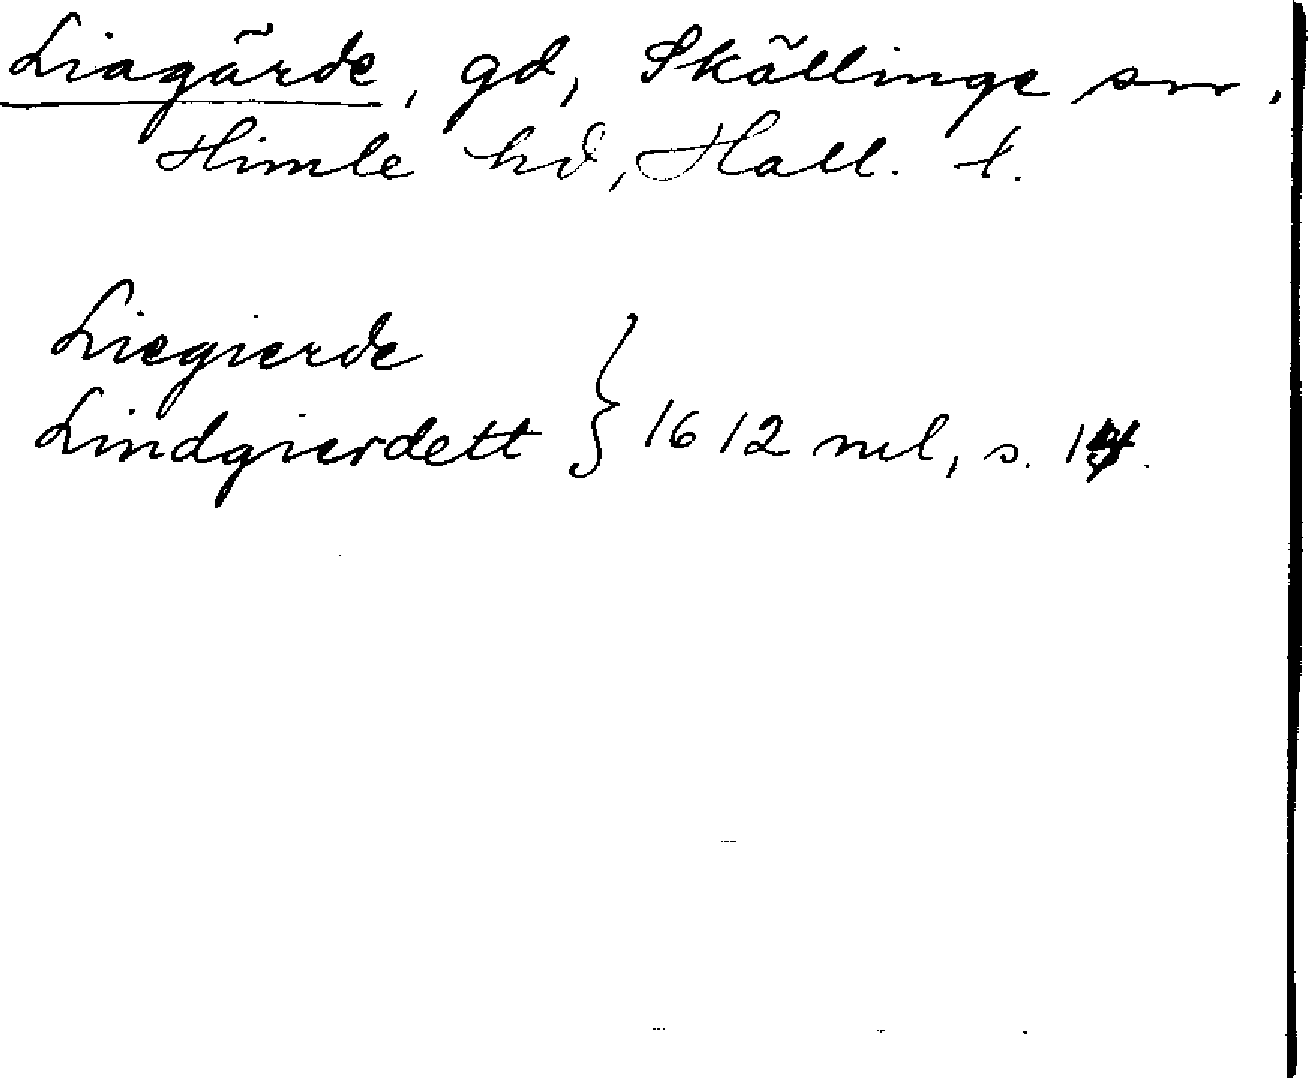 Liagärde, gd, Skällinge sn,
Himle hd, Hall. l.
Liegierde
Lindgierdett } 1612 ml, s.